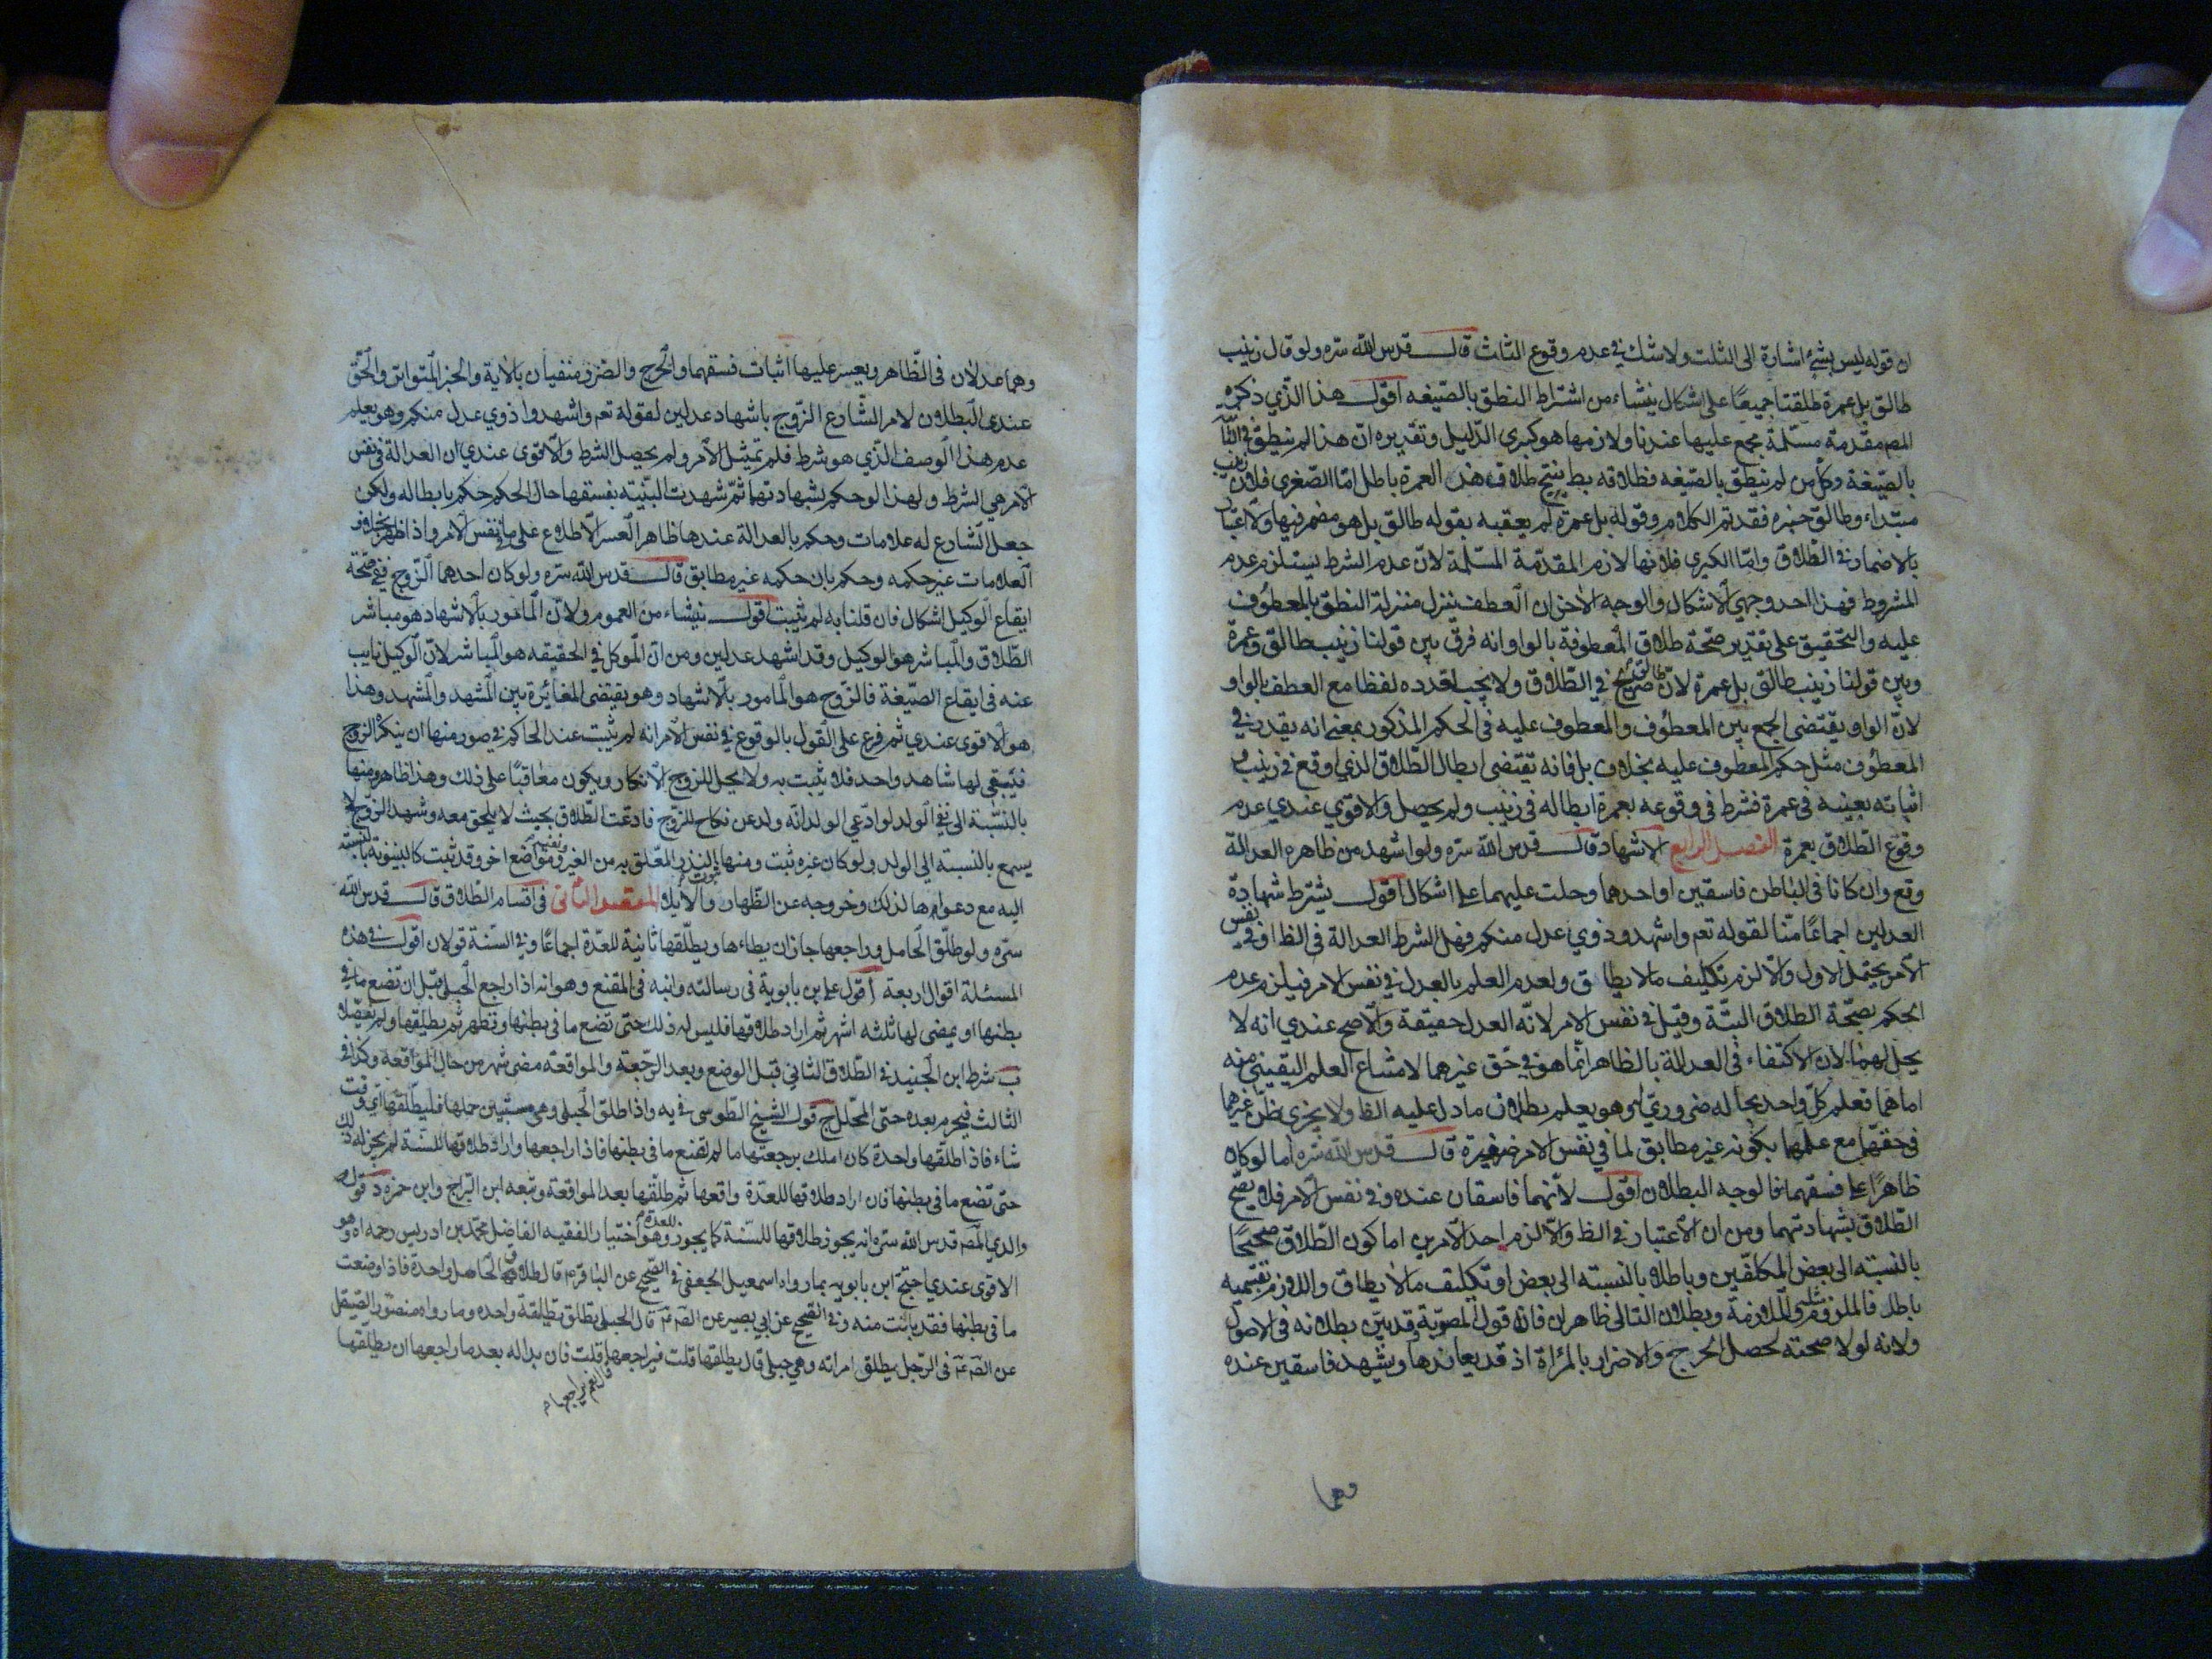 ان قوله ليس بشئ اشارة الى الثلث ولا شك في عدم وقوع الثلث قال قدس الله سره ولو قال زينب
طالق بل عمرة طلقتا جميعًا على اشكال ينشاء من اشتراط النطق بالصّيغه اقول هذا الّذي ذكره
المص مقدمة مسلّمة مجمع عليها عندنا ولازمها هو كبرى الدّليل وتقديره انّ هذا لم ينطق في الطلا
بالصّيغة وكل من لم ينطق بالصّيغه فطلاقه بط ينتج طلاق هذه العمرة باطل امّا الصّغرى فلان زينب
مبتداء وطالق خبره فقد تم الكلام وقوله بل عمرة لم يعقبه بقوله طالق بل هو مضمر فيها ولا اعتبار
بالاضمار في الطّلاق وامّا الكبرى فلانها لازم المقدّمة المسلّمة لانّ عدم الشرط يستلزم عدم
المشروط فهذا احد وجهي الاشكال والوجه الاخر ان العطف ينزل منزلة النطق بالمعطوف
عليه والتحقيق على تقدير صحّة طلاق المعطوفة بالواو انه فرق بين قولنا زينب طالق وعمرة
وبين قولنا زينب طالق بل عمرة لانّ طالق صريح في الطّلاق ولا يجب تعدده لفظا مع العطف بالواو
لانّ الواو يقتضى الجمع بين المعطوف والمعطوف عليه في الحكم المذكور بمعنى انه يقدر في
المعطوف مثل حكم المعطوف عليه بخلاف بل فانه تقتضى ابطال الطّلاق الذي اوقع في زينب و
اثباته بعينه في عمرة فشرط في وقوعه بعمرة ابطاله في زينب ولم يحصل والاقوى عندي عدم
وقوع الطّلاق بعمرة الفصل الرابع الاشهاد قال قدس الله سره ولو اشهد من ظاهره العدالة
وقع وان كانا في الباطن فاسقين او احدهما وحلت عليهما على اشكال اقول يشترط شهادة
العدلين اجماعًا منّا لقوله تعم واشهدوا ذوي عدل منكم فهل الشرط العدالة في الظا او في نفس
الامر يحتمل الاول والّا لزم تكليف مالا يطاق ولعدم العلم بالعدل في نفس الامر فيلزم عدم
الحكم بصحّة الطّلاق البتّة وقيل في نفس الامر لانّه العدل حقيقة والاصح عندي انه لا
يحل لهما لان الاكتفاء في العدالة بالظاهر انّما هو في حق غيرهما لامتناع العلم اليقيني منه
اما هما فعلم كلّ واحد بحاله ضروريّ له وهو يعلم بطلان ما دل عليه الظا ولا يجزى ظنّ غيرهما
في حقهما مع علمهما بكونه غير مطابق لما في نفس الامر ضرورة قال قدس الله سره اما لو كان
ظاهرًا على فسقهما فالوجه البطلان اقول لانّهما فاسقان عنده وفي نفس الامر فلا يصّح
الطّلاق بشهادتهما ومن ان الاعتبار في الظ والّا لزم احد الامرين اما كون الطّلاق صحيحًا
بالنسبته الى بعض المكلّفين وباطلا بالنسبته الى بعض او تكليف مالا يطاق واللازم بقسميه
باطل فالملزوم مثله والملازمة وبطلان التالى ظاهران فان قول المصوّبة قد تبيّن بطلانه في الاصول
ولانه لولا صحته لحصل الحرج والاضرار بالمرأة اذ قد يعاندها ويشهد فاسقين عنده
وهما
وهما عدلان في الظّاهر ويعسر عليها اثبات فسقهما والحرج والضرر منفيان بالآية والخبر المتواتر والحقّ
عندى البطلان لامر الشّارع الزّوج باشهاد عدلين لقوله تعم واشهدوا ذوي عدل منكم وهو يعلم
عدم هذا الوصف الّذي هو شرط فلم تمتثل الامر ولم يحصل الشرط والاقوى عندي ان العدالة في نفس
الامر هي الشرط ولهذا لو حكم بشهادتهما ثمّ شهدت البيّنه بفسقهما حال الحكم حكم بابطاله ولكن
جعل الشّارع له علامات وحكم بالعدالة عندها ظاهرا لعسر الاطلاع على ما في نفس الامر واذا ظهر بخلاف
العلامات غير حكمه وحكم بان حكمه غير مطابق قال قدس الله سره ولو كان احدهما الزّوج ففي صحّة
ايقاع الوكيل اشكال فان قلنا به لم تثبت اقول ينشاء من العموم ولانّ المامور بالاشهاد هو مباشر
الطّلاق والمباشر هو الوكيل وقد اشهد عدلين ومن انّ الموكل في الحقيقه هو المباشر لانّ الوكيل نايب
عنه في ايقاع الصّيغة فالزّوج هو المامور بالاشهاد وهو يقتضى المغائرة بين المشهد والمشهد وهذا
هو الاقوى عندي ثم فرع على القول بالوقوع في نفس الامر انه لم تثبت عند الحاكم في صور منها ان ينكر الزوج
فيبقى لها شاهد واحد فلا يثبت به ولا يحل للزوج الانكار ويكون معاقبًا على ذلك وهذا ظاهر ومنها
بالنسّبة الى نفي الولد لو ادّعى الولد انّه ولد عن نكاح للزوج فادعّت الطّلاق بحيث لا يلحق معه وشهد الزّوج لا
يسمع بالنسبته الى الولد ولو كان غيره ثبت ومنها النذر المعّلق به من الغير ومواضع اخر وقد ثبت كالبينونة بالنسبته
اليه مع دعواها لذلك وخروجه عن الظّهار والايلاء المقصد الثانى في اقسام الطّلاق قال قدس الله
سرّه ولو طلّق الحامل وراجعها جاز ان يطاءها ويطلّقها ثانية للعدّة اجماعًا وفي السّنة قولان اقول في هذه
المسئلة اقوال اربعة ا قول على بن بابوية في رسالته وابنه في المقنع وهو انه اذا راجع الحبلى قبل ان تضع ما في
بطنها او يمضى لها ثلثه اشهر ثم اراد طلاقها فليس له ذلك حتى تضع ما في بطنها وتطهر ثم يطلّقها ولم يفصّلا
ب شرط ابن الجنيد في الطّلاق الثانى قبل الوضع وبعد الرّجعة والمواقعة مضى شهر من حال المواقعه وكذا في
الثالث فيحرم بعده حتى المحّلل ج قول الشيخ الطّوسى في يه واذا طلق الحبلى وهي مستبين حملها فليطّلقها اي وقت
شاء فاذا طلّقها واحدة كان املك برجعتها ما لم تضع ما في بطنها فاذا راجعها واراد طلاقها للسّنة لم يجز له ذلك
حتى تضع ما في بطنها فان اراد طلاقها للعدّة واقعها ثم طلّقها بعد المواقعة وتبعه ابن البرّاج وابن حمزه د قول
والدي المص قدس الله سره انه يجوز طلاقها للسّنة كما يجوز للعدة وهو اختيار الفقيه الفاضل محمّد بن ادريس رحمه اه وهو
الاقوى عندي احتج ابن بابويه بما رواه اسمعيل الجعفى في الصّحيح عن الباقر ع قال طلاق الحامل واحدة فاذا وضعت
ما في بطنها فقد بانت منه وفي الصّحيح عن ابي بصير عن الص ع م قال الحبلى تطلق تطليقة واحده وما رواه منصور الصّيقل
عن الص ع م في الرّجل يطلق امراته وهي حبلى قال يطلقها قلت فيراجعها قلت فان بدا له بعد ما راجعها ان يطلقها
قال نعم يراجعها م